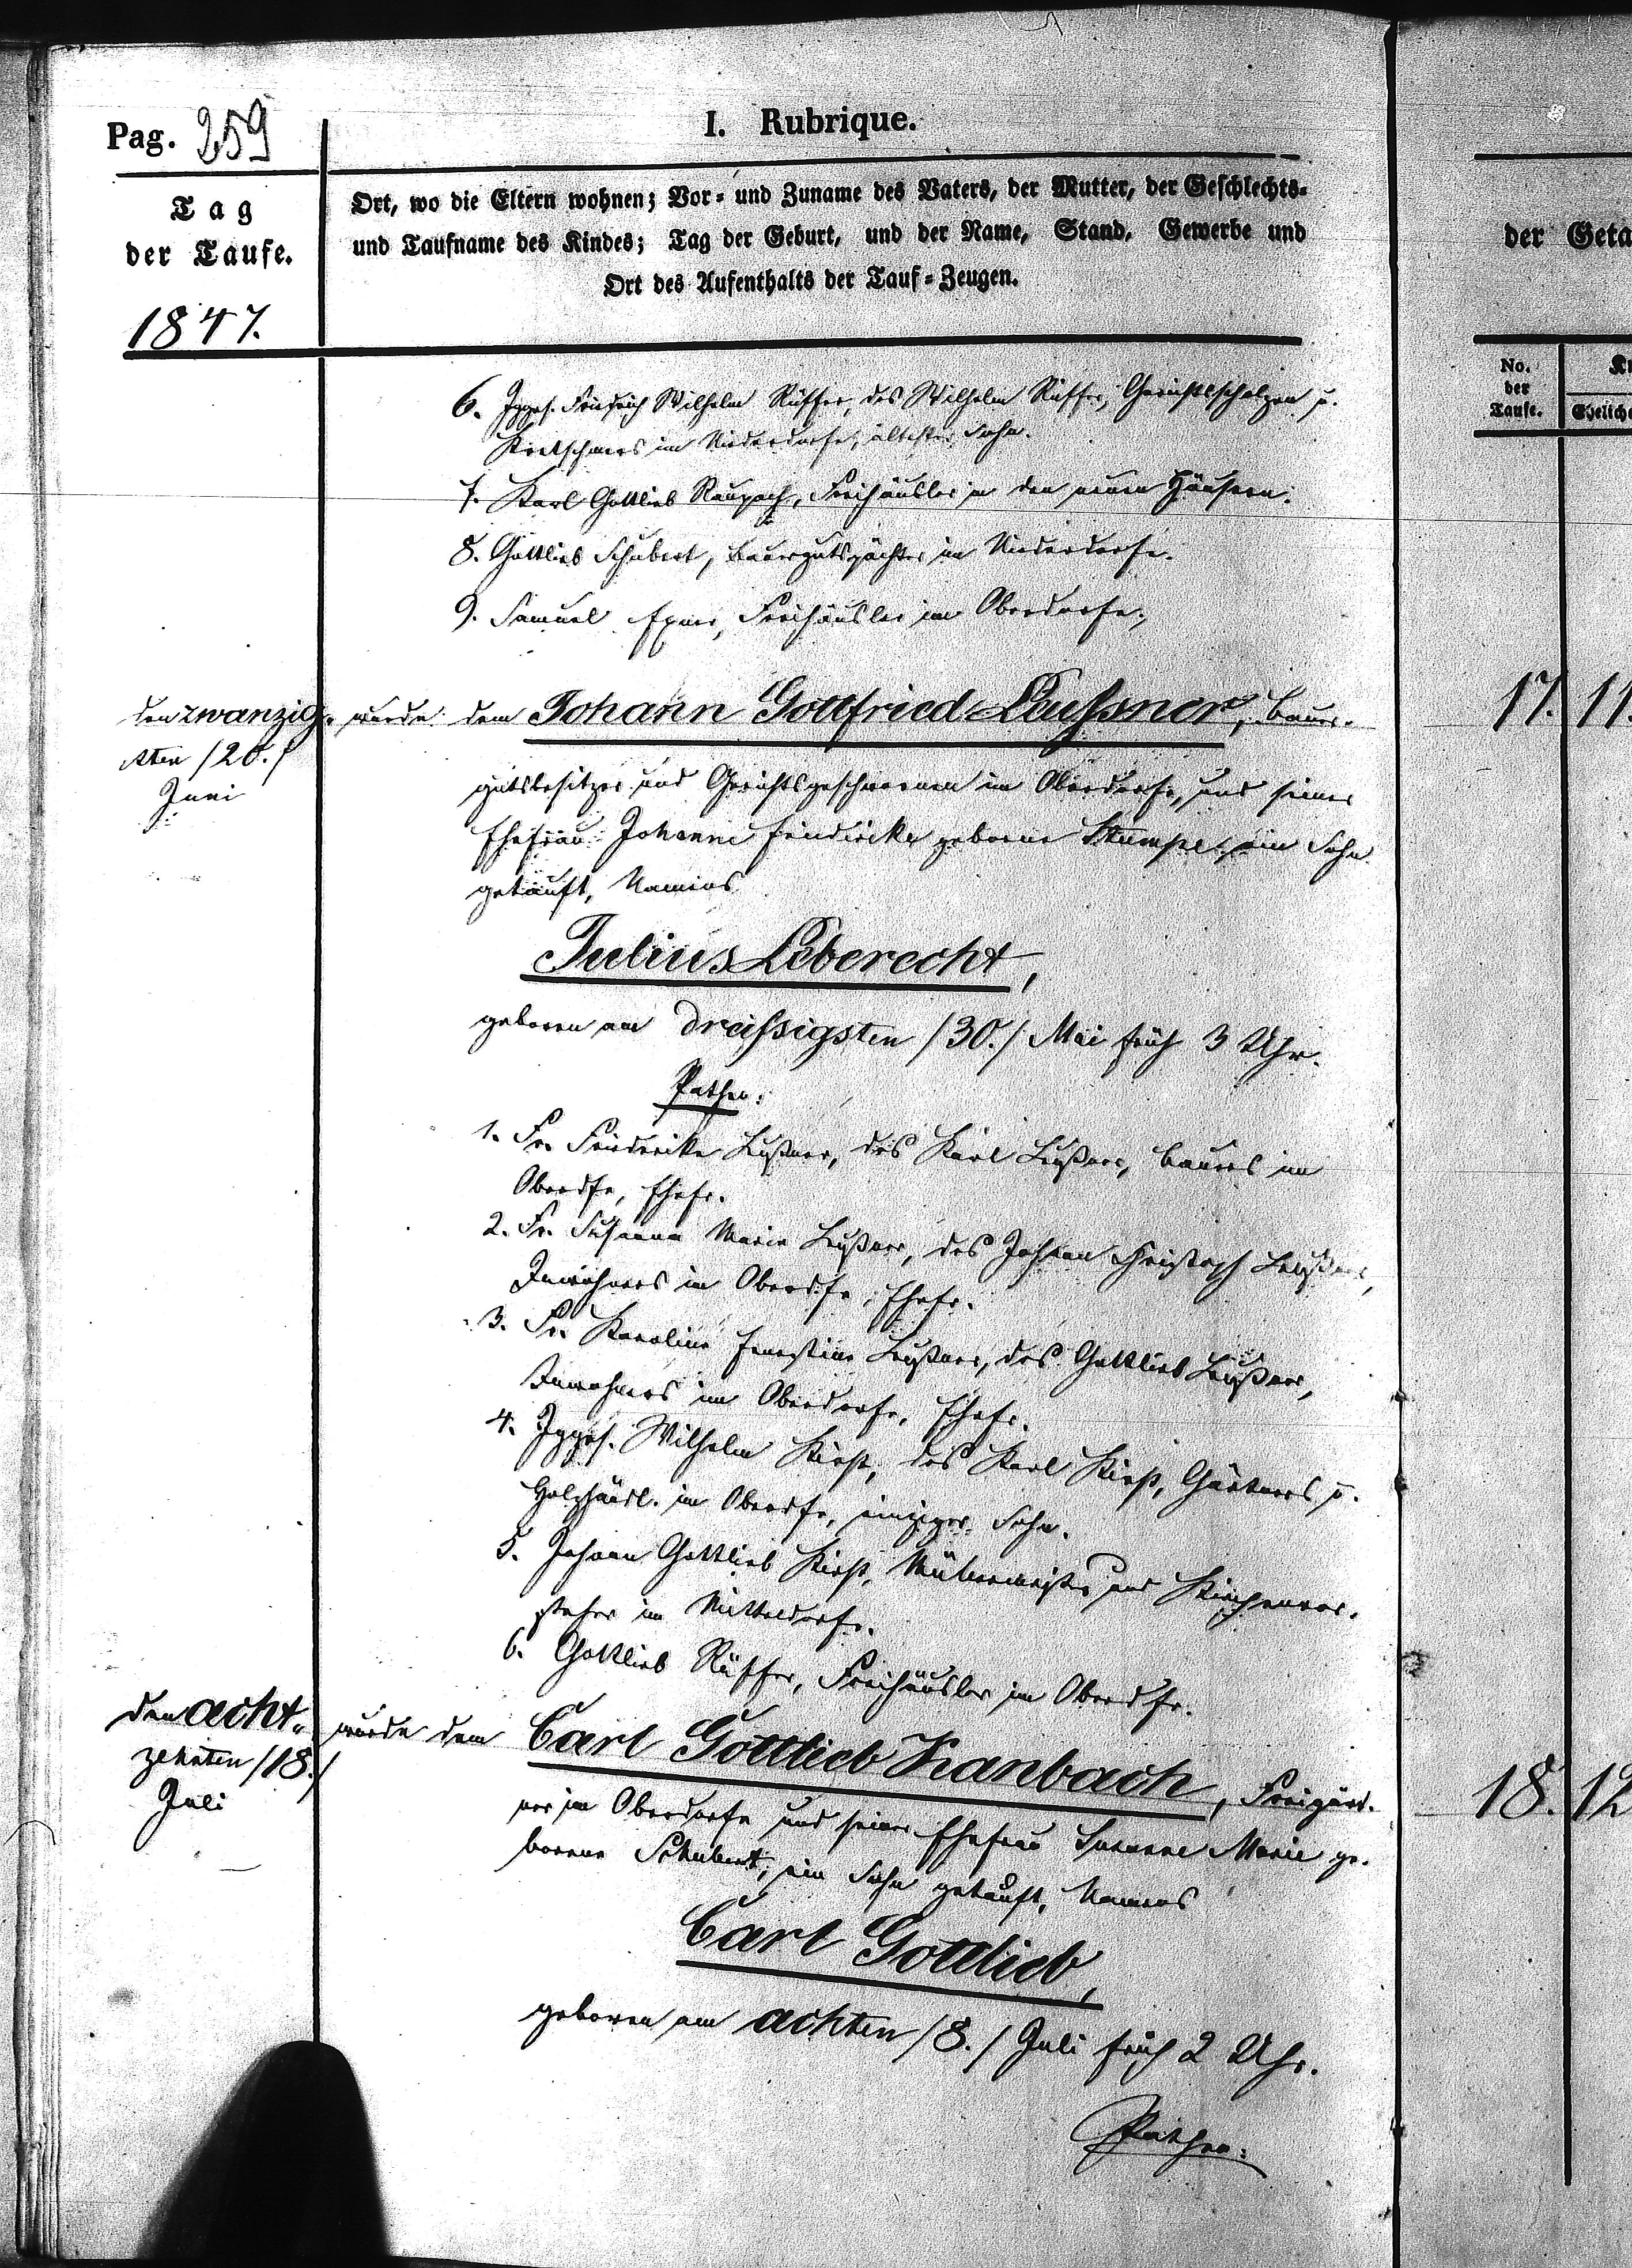 Pag. 259
I. Rubrique.
Tag
der Taufe.
1847.
Ort, wo die Eltern wohnen; Vor- und Zuname des Vaters, der Mutter, der Geschlechts-
und Taufname des Kindes; Tag der Geburt, und der Name, Stand, Gewerbe und
Ort des Aufenthalts der Tauf-Zeugen.
6. Jgges. Friedrich Wilhelm Rüffer, des Wilhelm Rüffer, Gerichtsscholzen u.
Kretschmers im Niederdorfe, ältester Sohn.
7. Karl Gottlieb Raupach, Freihäusler in den neuen Häusern.
8. Gottlieb Schubert, Bauergutspächter im Niederdorfe.
9. Samuel Exner, Freihäusler im Oberdorfe.
den zwanzig-
sten /20./
Juni
wurde dem Johann Gottfried Leussner, Bauer-
gutsbesitzer und Gerichtsgeschwornen im Oberdorfe, und seiner
Ehefrau Johanne Friedricke geborne Stumpe, ein Sohn
getauft, Namens
Julius Leberecht,
geboren am dreissigsten /30./ Mai früh 3 Uhr.
Pathen:
1. Fr. Friedericke Leußner, des Karl Leußner, Bauers im
Oberdfe, Ehefr.
2. Fr. Susanna Maria Leußner, des Johann Christoph Leußner,
Inwohners im Oberdfe, Ehefr.
3. Fr. Karoline Ernestine Leußner, des Gottlieb Leußner,
Inwohners im Oberdorfe, Ehefr.
4. Jgges. Wilhelm Kirst, des Karl Kirst, Gärtners u.
Holzhändl. im Oberdfe, einziger Sohn.
5. Johann Gottlieb Kirst, und Kirchenvor-
steher im Mitteldorfe.
6. Gottlieb Rüffer, Freihäusler im Oberdfe.
den acht-
zehnten /18./
Juli
wurde dem Carl Gottlieb Hanbach, Freigärt-
ner im Oberdorfe und seiner Ehefrau Susanne Marie ge-
bornen Schubert, ein Sohn getauft, Namens
Carl Gottlieb,
geboren am achten /8./ Juli früh 2 Uhr.
Pathen:
der
No.
der
Taufe.
17. 11
18. 12